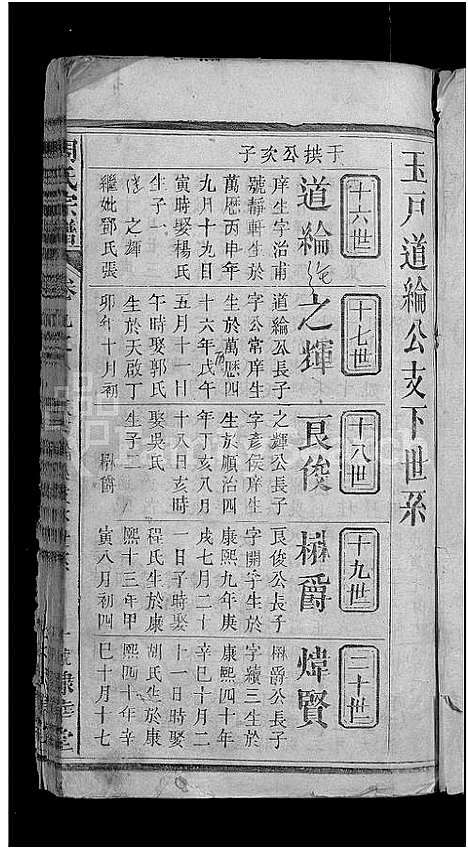 玉戸道綸公支下世系
十六世
于拱公次子
道綸
庠生字治甫
號靜軒生於
萬歷丙申年
九月十九日
寅時娶楊氏
生子一
之輝
繼妣鄧氏張
十七世
之輝
道綸公長子
字公常庠生
生於萬歷四
十六年戊午
五月十一日
午時娶郭氏
生於天啟丁
卯年十月初
十八世
良俊
之輝公長子
字彥侯庠生
生於順治四
年丁亥八月
十八日亥時
娶吳氏
生子二
十九世
爵
良俊公長子
字開孚生於
康熙九年庚
戌七月二十
一日子時娶
程氏生於康
熙十三年甲
寅八月初四
二十世
煒賢
爵公長子
字續三生於
康熙四十年
辛巳十月二
十一日時娶
胡氏生於康
熙四十年辛
巳十月十七
周氏宗譜
卷
堂